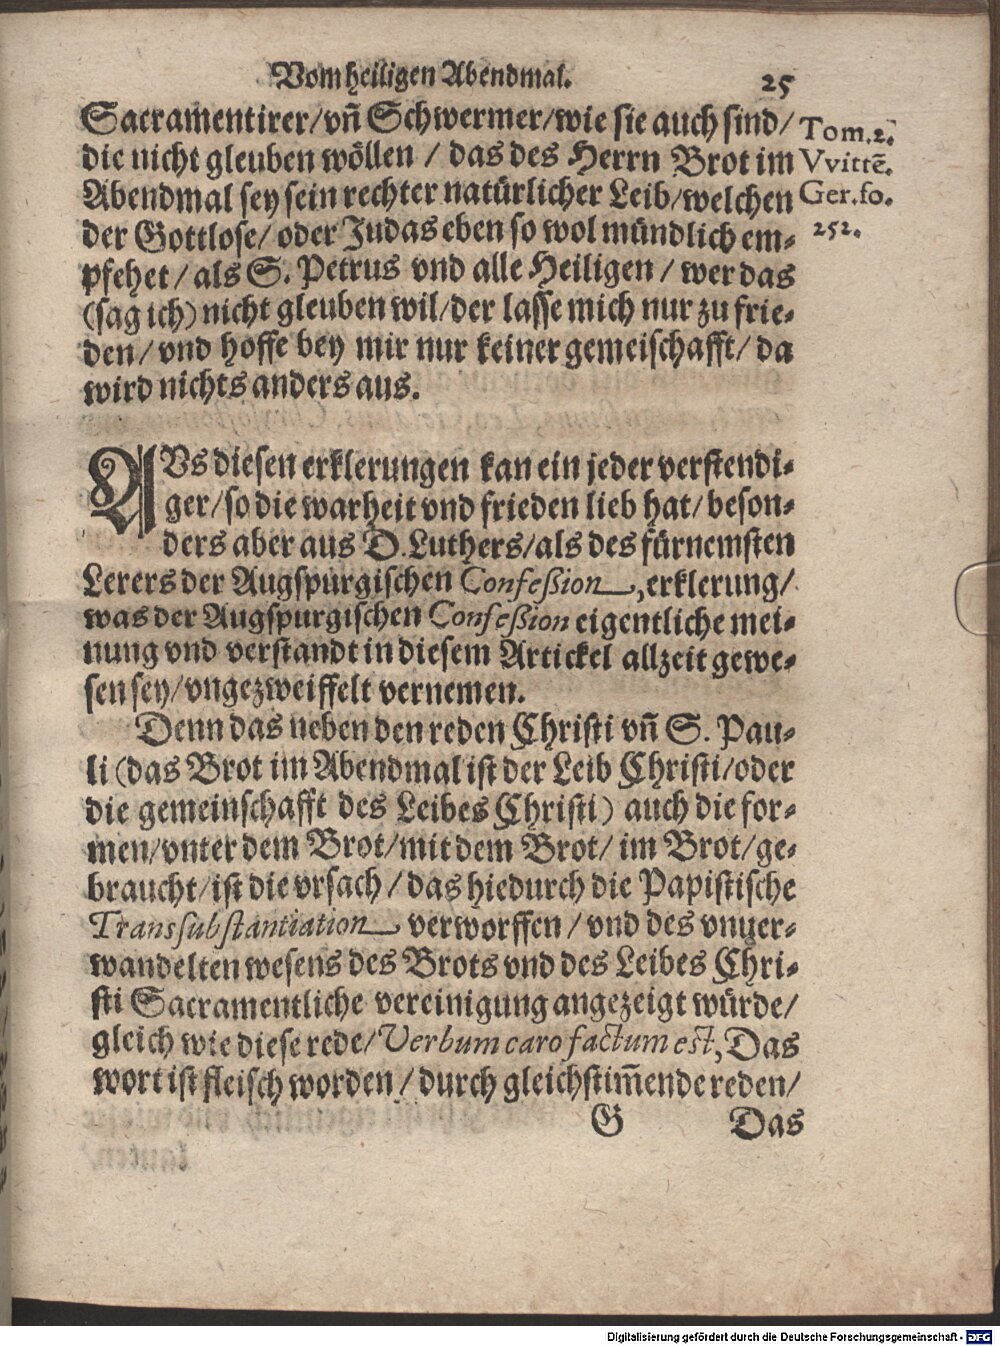 Vom heiligen Abendmal. 25
Sacramentirer/vn̄ Schwermer/wie sie auch sind/
die nicht gleuben wöllen / das des Herrn Brot im
Abendmal sey sein rechter natürlicher Leib/welchen
der Gottlose/ oder Judas eben so wol mündlich em⸗
pfehet / als S. Petrus vnd alle Heiligen / wer das
(sag ich) nicht gleuben wil/der lasse mich nur zu frie⸗
den / vnd hoffe bey mir nur keiner gemeischafft/ da
wird nichts anders aus.
Tom.2.
Vvittē.
Ger.fo.
252.
AVs diesen erklerungen kan ein jeder verstendi⸗
ger/so die warheit vnd frieden lieb hat/ beson⸗
ders aber aus D. Luthers/als des fürnemsten
Lerers der Augspurgischen Confeßion, erklerung/
was der Augspurgischen Confeßion eigentliche mei⸗
nung vnd verstandt in diesem Artickel allzeit gewe⸗
sen sey/vngezweiffelt vernemen.
Denn das neben den reden Christi vn̄ S. Pau⸗
li (das Brot im Abendmal ist der Leib Christi/oder
die gemeinschafft des Leibes Christi) auch die for⸗
men/vnter dem Brot/mit dem Brot/ im Brot/ge⸗
braucht/ist die vrsach / das hiedurch die Papistische
Transsubstantiation verworffen / vnd des vnuer⸗
wandelten wesens des Brots vnd des Leibes Chri⸗
sti Sacramentliche vereinigung angezeigt würde/
gleich wie diese rede/Verbum caro factum est, Das
wort ist fleisch worden / durch gleichstim̄ende reden/
G Das
Digitalisierung gefördert durch die Deutsche Forschungsgemeinschaft - DFG